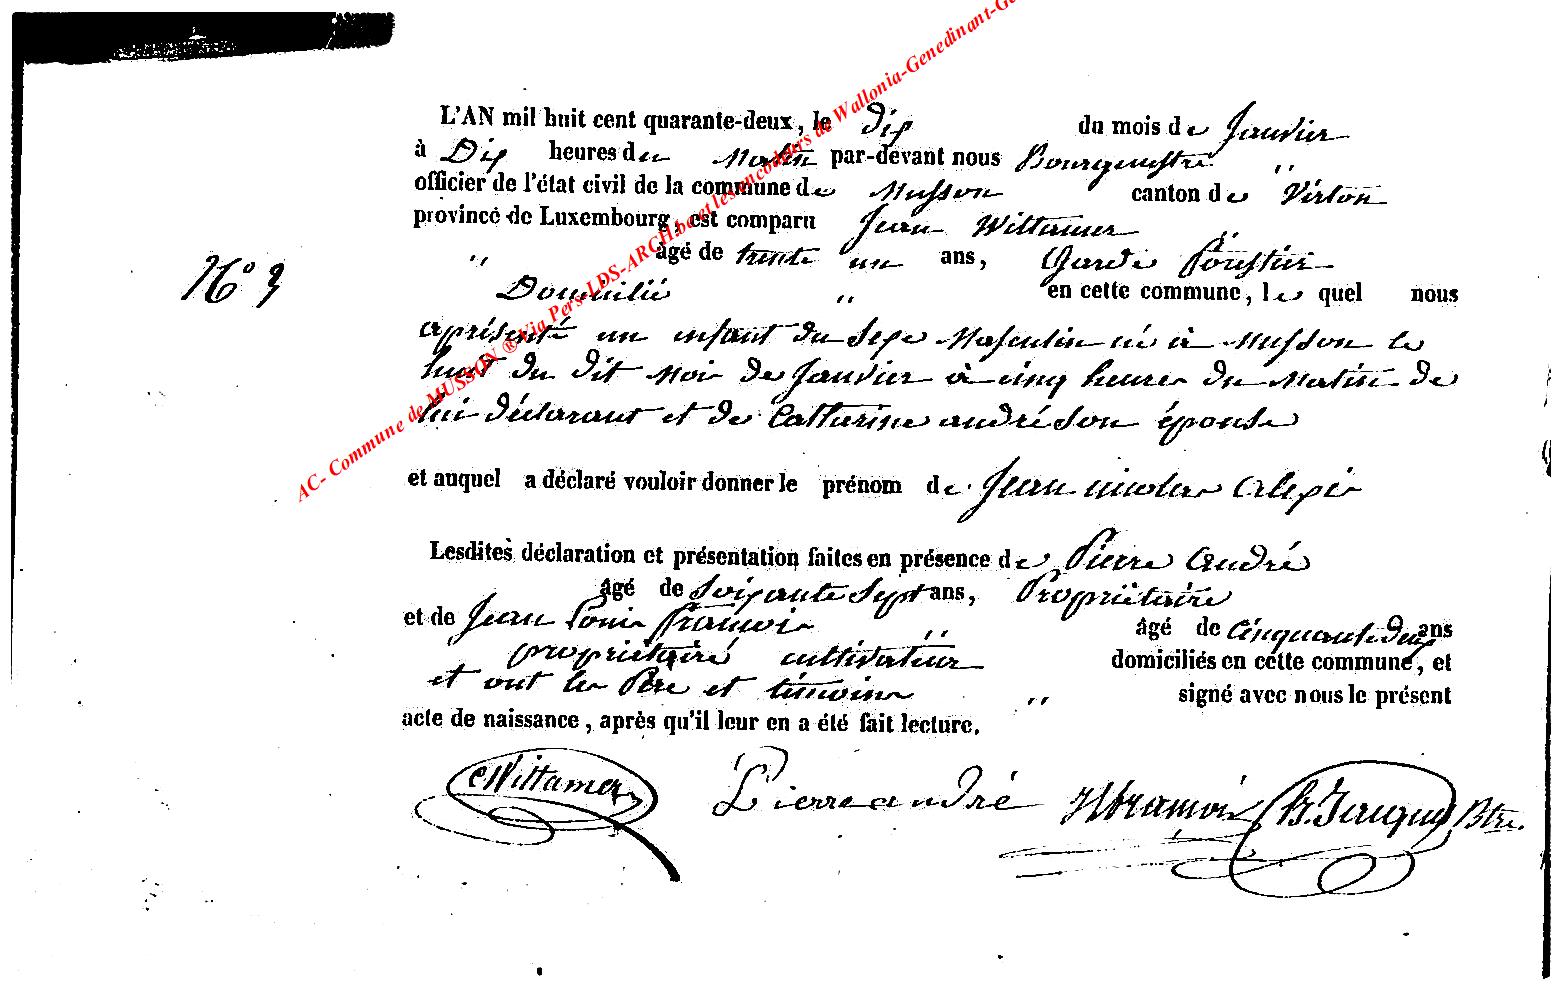 AC- Commune de MUSSON ® Via Pers-LDS-ARCH.be et les encodeurs de Wallonia-Genedinant-Ge
L'AN mil huit cent quarante-deux, le Dix du mois de Janvier
à Dix heures du Matin par-devant nous Bourgmestre "
officier de l'état civil de la commune de Musson canton de Virton
province de Luxembourg, est comparu Jean Wittamer "
" âgé de trente un ans, Garde Foustier
N° 3
Domicilié " en cette commune, le quel nous
a présenté un enfant du Sexe Masculin né à Musson le
huit du dit Mois de Janvier à cinq heures du Matin de
lui déclarant et de Catherine andré son épouse
et auquel a déclaré vouloir donner le prénom de Jean nicolas alexis
Lesdites déclaration et présentation faites en présence de Pierre andré
âgé de Soixante Sept ans, Propriétaire
et de Jean Louis " âgé de Cinquante deux ans
propriétaire cultivateur domiciliés en cette commune, et
et ont les Père et témoins " signé avec nous le présent
acte de naissance, après qu'il leur en a été fait lecture.
Wittamer Pierre andré Btre.